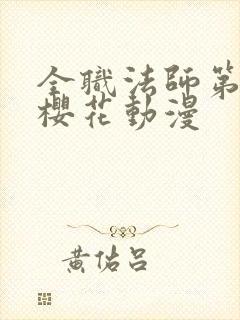 全職法師第
櫻花動漫
黃佑呂